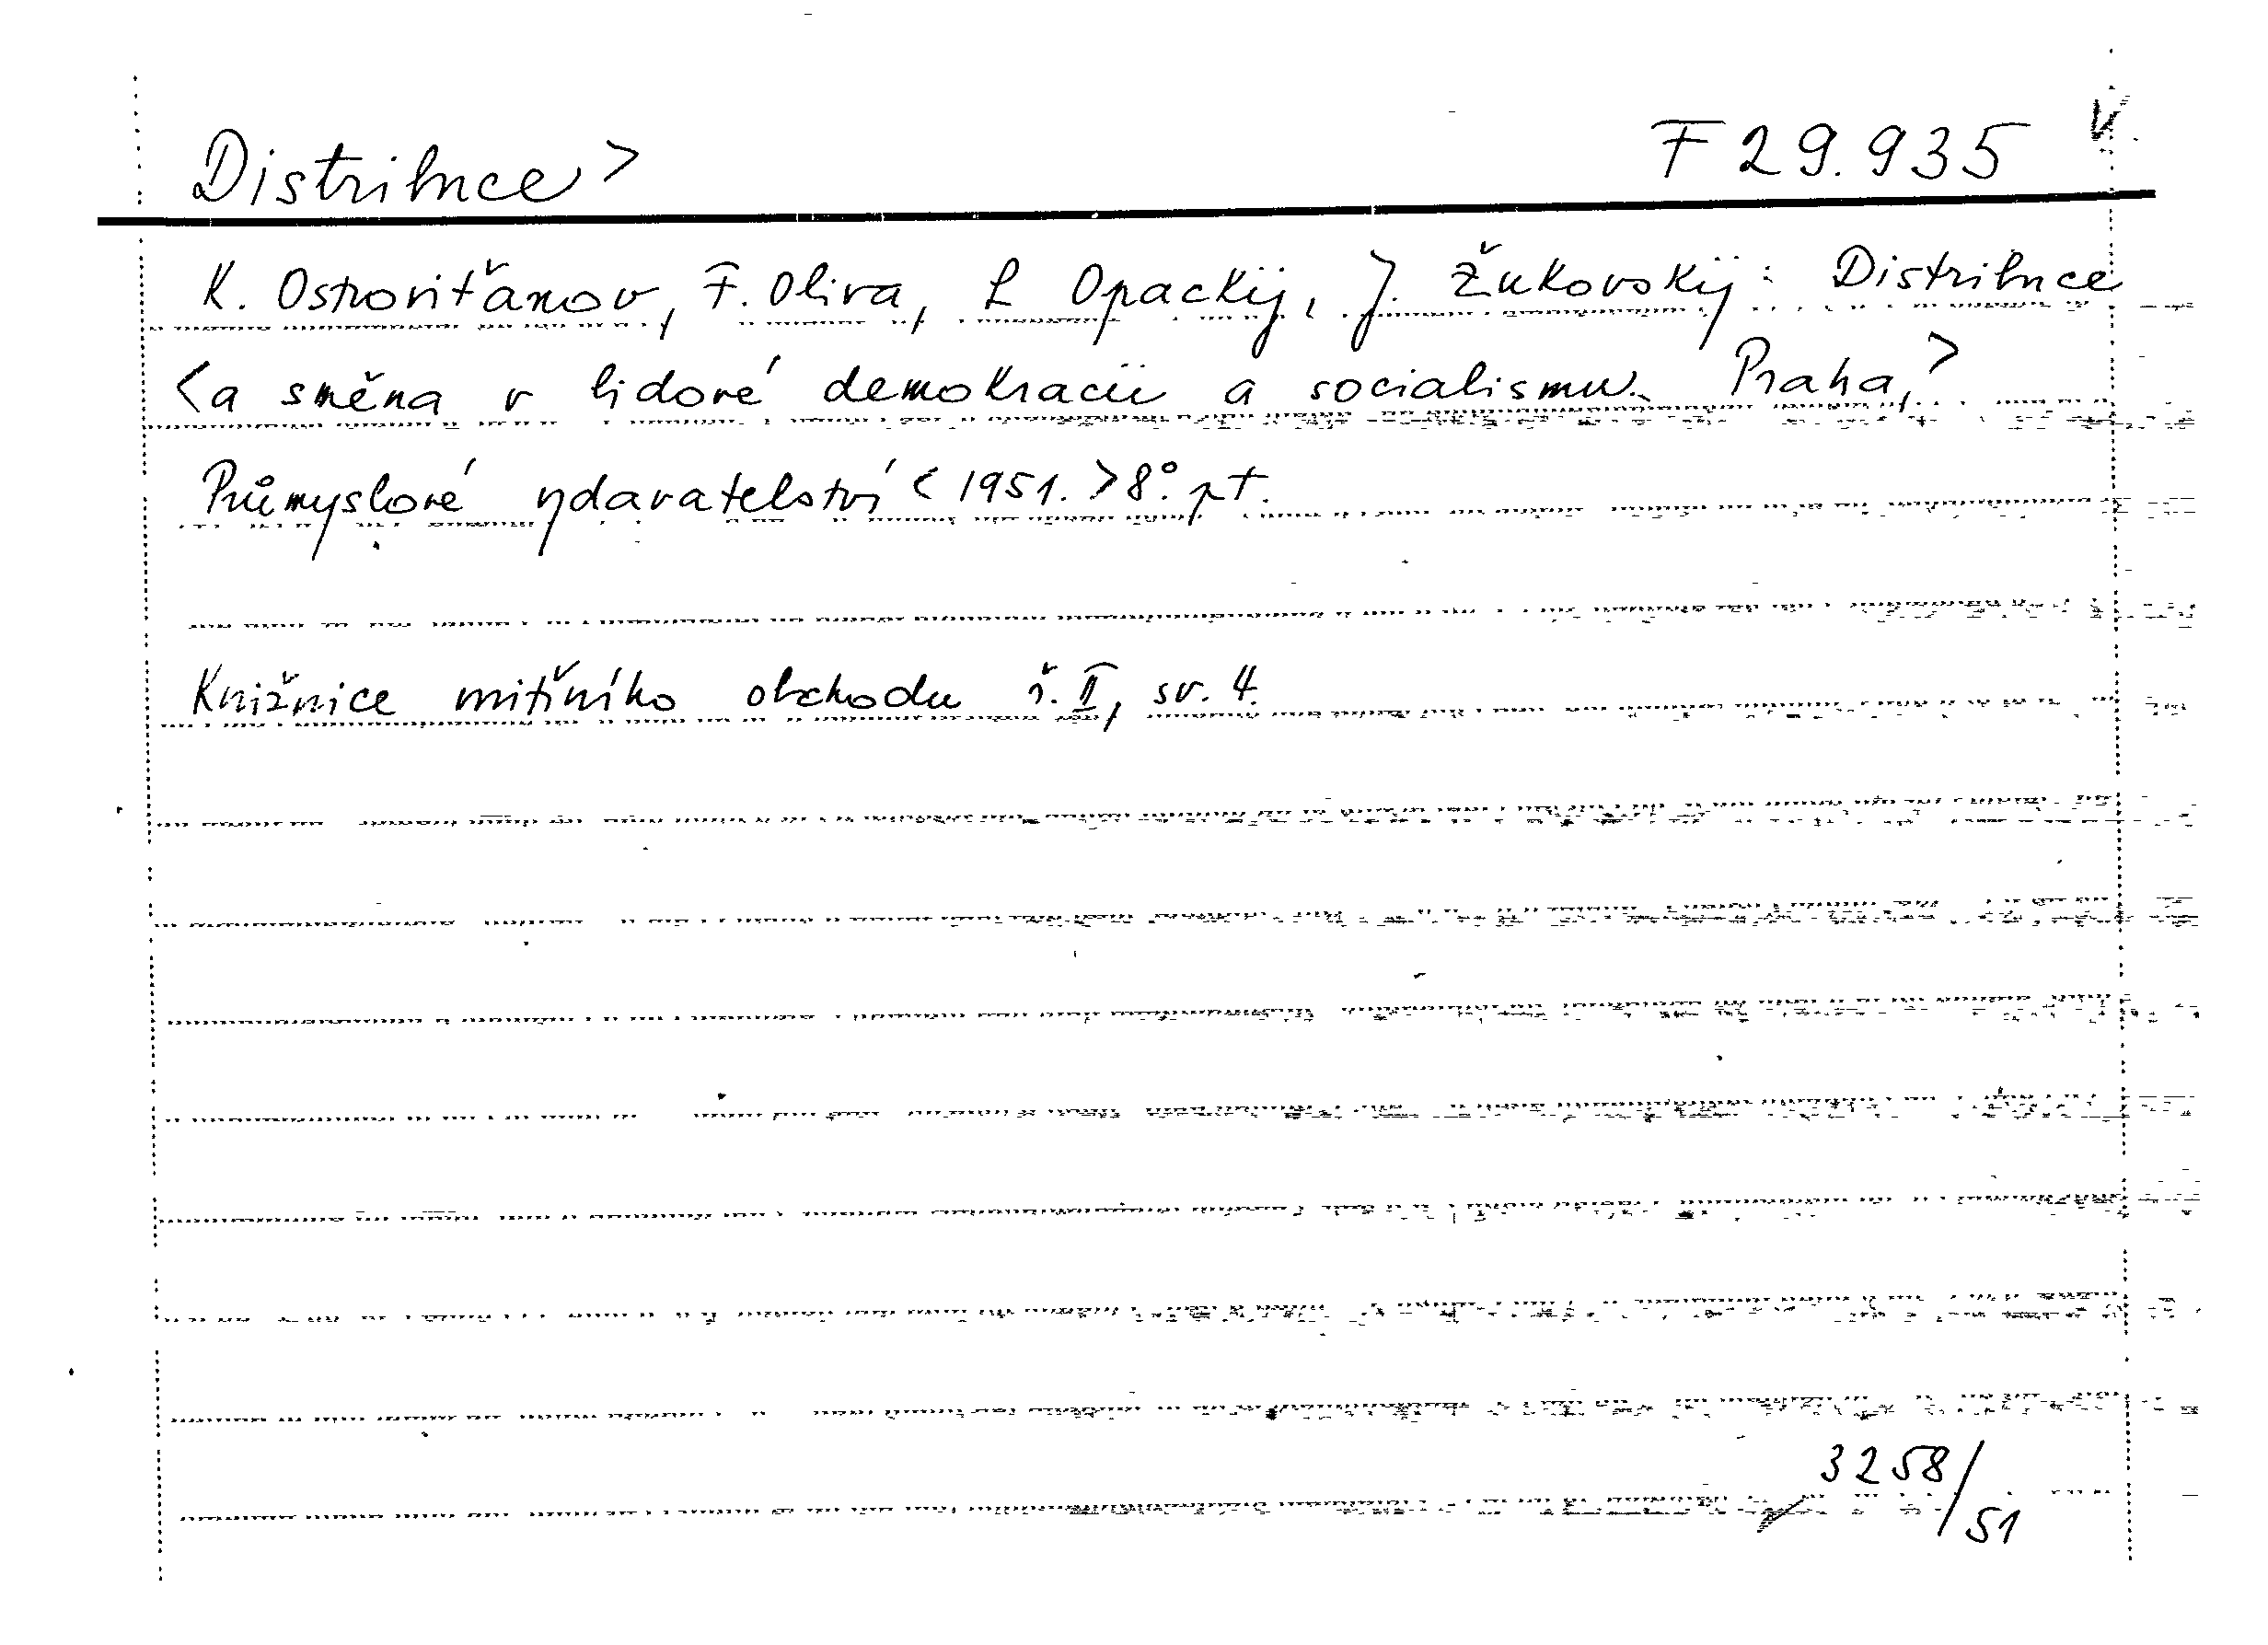 Distribuce > F 29.935 V.
K. Ostroviťanov, F. Oliva, L Opackij, J. Žukovskij: Distribuce
<a směna v lidové demokracii a socialismu. Praha,>
Průmyslové vydavatelství <1951.> 8°. pt.
Knižnice vnitřního obchodu ř. II, sv. 4.
3258/51